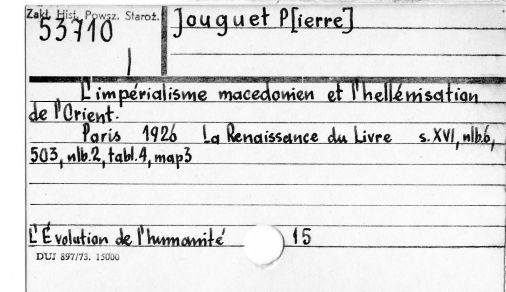 Zakł. Hist. Powsz. Staroż.
53710
Jouguet P[ierre]
L'impérialisme macedonien et l'hellénisation
de l'Orient.
Paris 1926 La Renaissance du Livre s. XVI, nlb.6,
503, nlb.2, tabl.4, map3
L'Évolution de l'humanité 15
DUJ 897/73. 15000